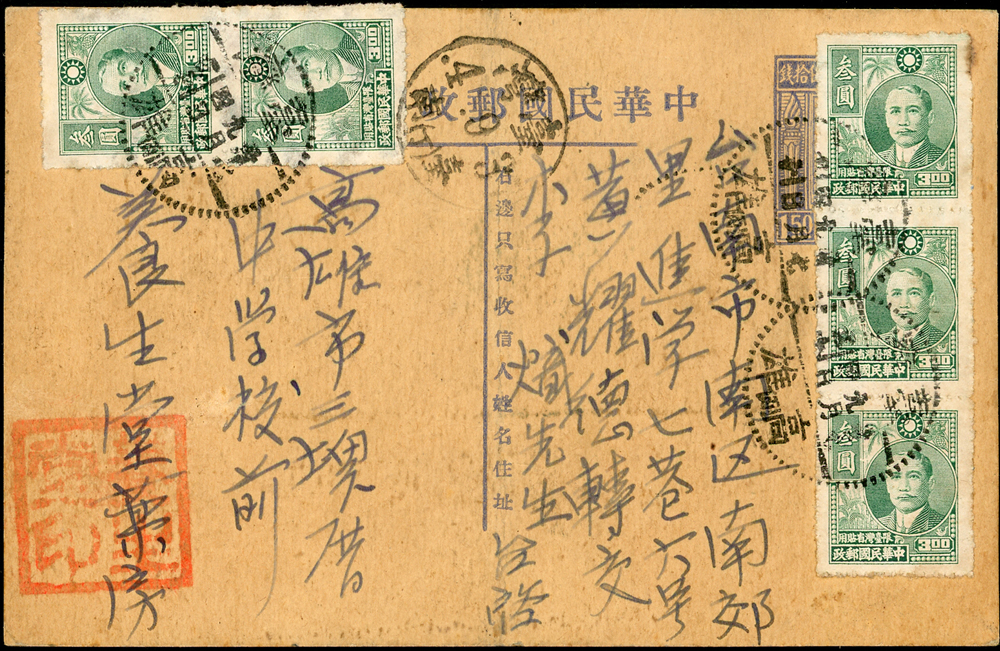 中華民國郵政
右邊只寫收信人姓名住址
150
台南市南区南郊
里進学七巷六号
黃耀德轉交
李 熾先生 台啓
高雄市三塊厝
中学校前
美良生堂藥房
叁圓
限臺灣省貼用
中華民國郵政
3.00
叁圓
限臺灣省貼用
中華民國郵政
3.00
叁圓
限臺灣省貼用
中華民國郵政
3.00
叁圓
中華民國郵政
3.00
叁圓
中華民國郵政
3.00
臺灣
高雄